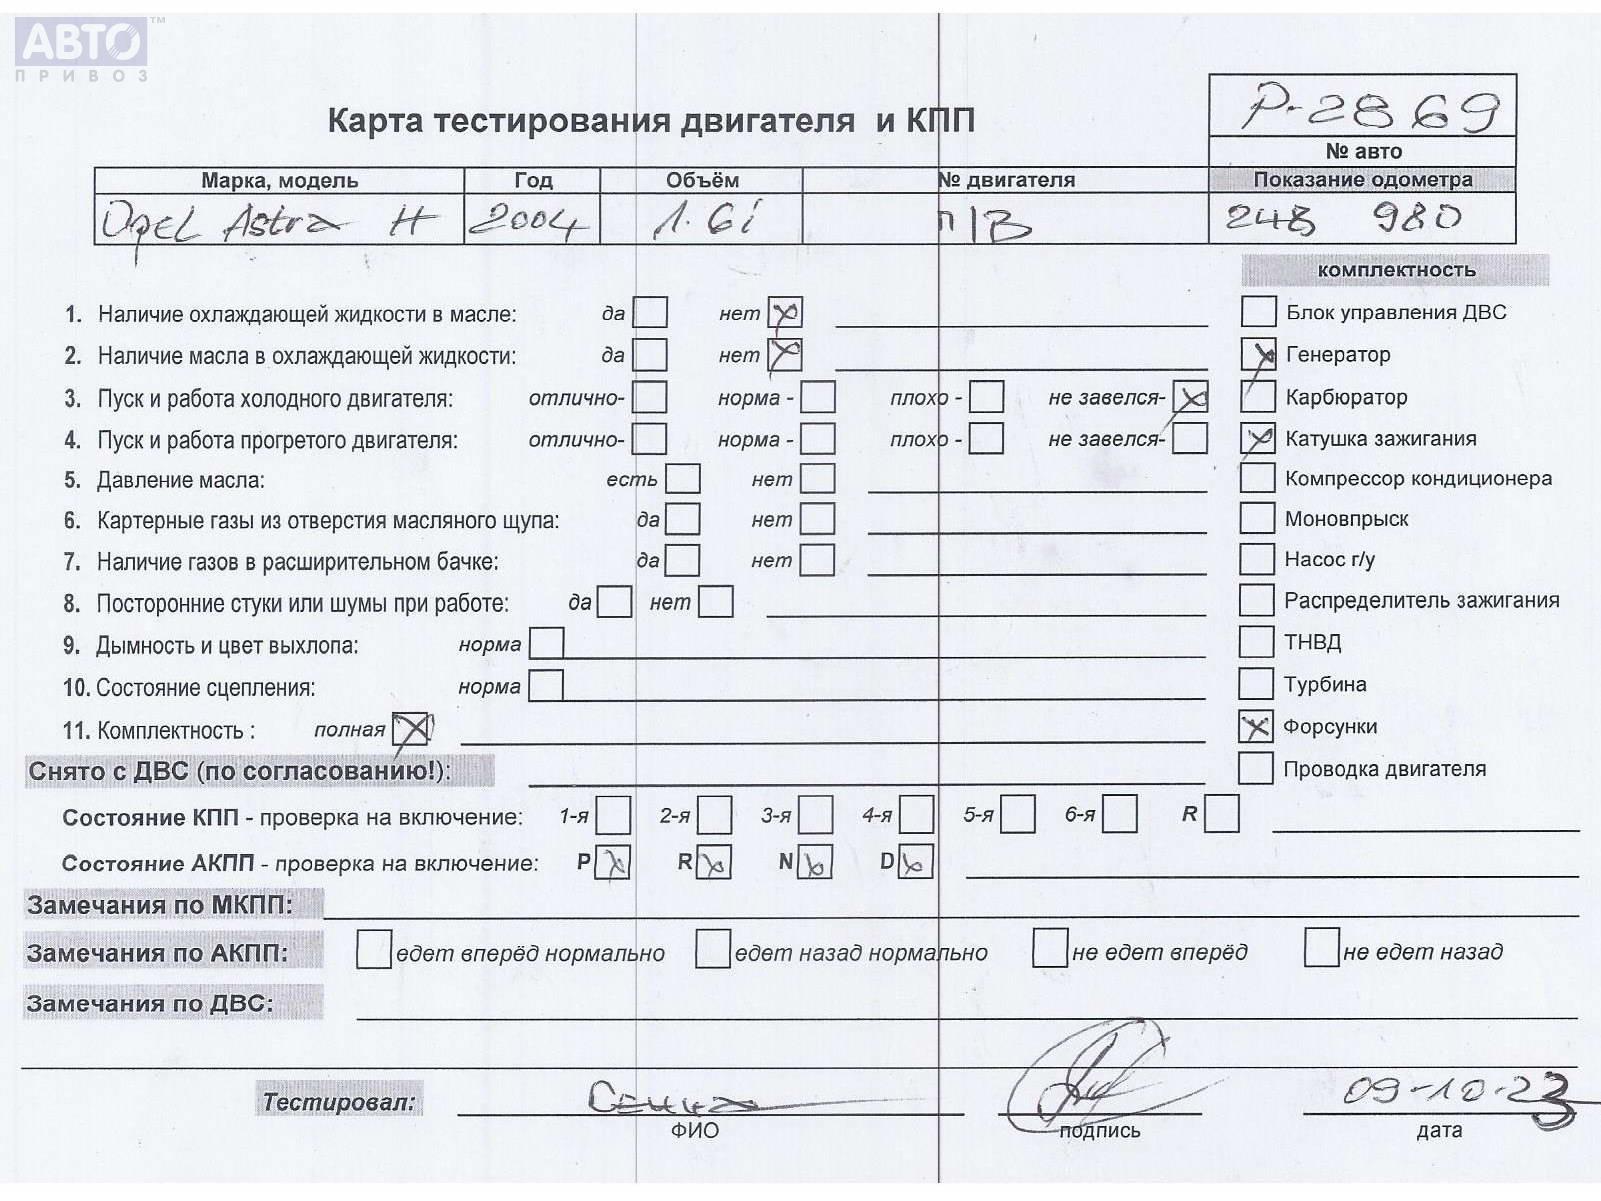 АВТО™
ПРИВОЗ
P-2869
Карта тестирования двигателя и КПП
№ авто
Марка, модель Год Объём № двигателя Показание одометра
Opel Astra H 2004 1.6i п/В 248 980
комплектность
1. Наличие охлаждающей жидкости в масле: да нет Блок управления ДВС
2. Наличие масла в охлаждающей жидкости: да нет Генератор
3. Пуск и работа холодного двигателя: отлично- норма - плохо - не завелся- Карбюратор
4. Пуск и работа прогретого двигателя: отлично- норма - плохо - не завелся- Катушка зажигания
5. Давление масла: есть нет Компрессор кондиционера
6. Картерные газы из отверстия масляного щупа: да нет Моновпрыск
7. Наличие газов в расширительном бачке: да нет Насос г/у
8. Посторонние стуки или шумы при работе: да нет Распределитель зажигания
9. Дымность и цвет выхлопа: норма ТНВД
10. Состояние сцепления: норма Турбина
11. Комплектность : полная Форсунки
Снято с ДВС (по согласованию!): Проводка двигателя
Состояние КПП - проверка на включение: 1-я 2-я 3-я 4-я 5-я 6-я R
Состояние АКПП - проверка на включение: P R N D
Замечания по МКПП:
Замечания по АКПП: едет вперёд нормально едет назад нормально не едет вперёд не едет назад
Замечания по ДВС:
Тестировал: 09-10-23
ФИО подпись дата